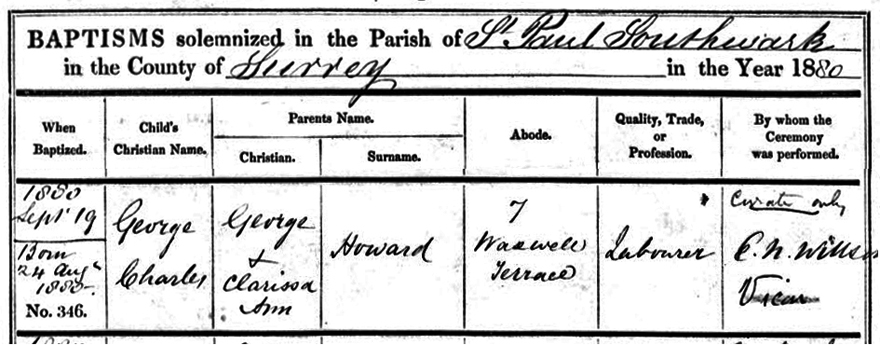 BAPTISMS solemnized in the Parish of St. Paul Southwark
in the County of Surrey in the Year 1880
When Baptized.
Child's Christian Name.
Parents Name.
Christian.
Surname.
Abode.
Quality, Trade, or Profession.
By whom the Ceremony was performed.
1880
Sept 19
Born
24 Augt
1880.
No. 346.
George
Charles
George
+
Clarissa
Ann
Howard
7
Waxwell
Terrace
Labourer
Curate only
Vicar